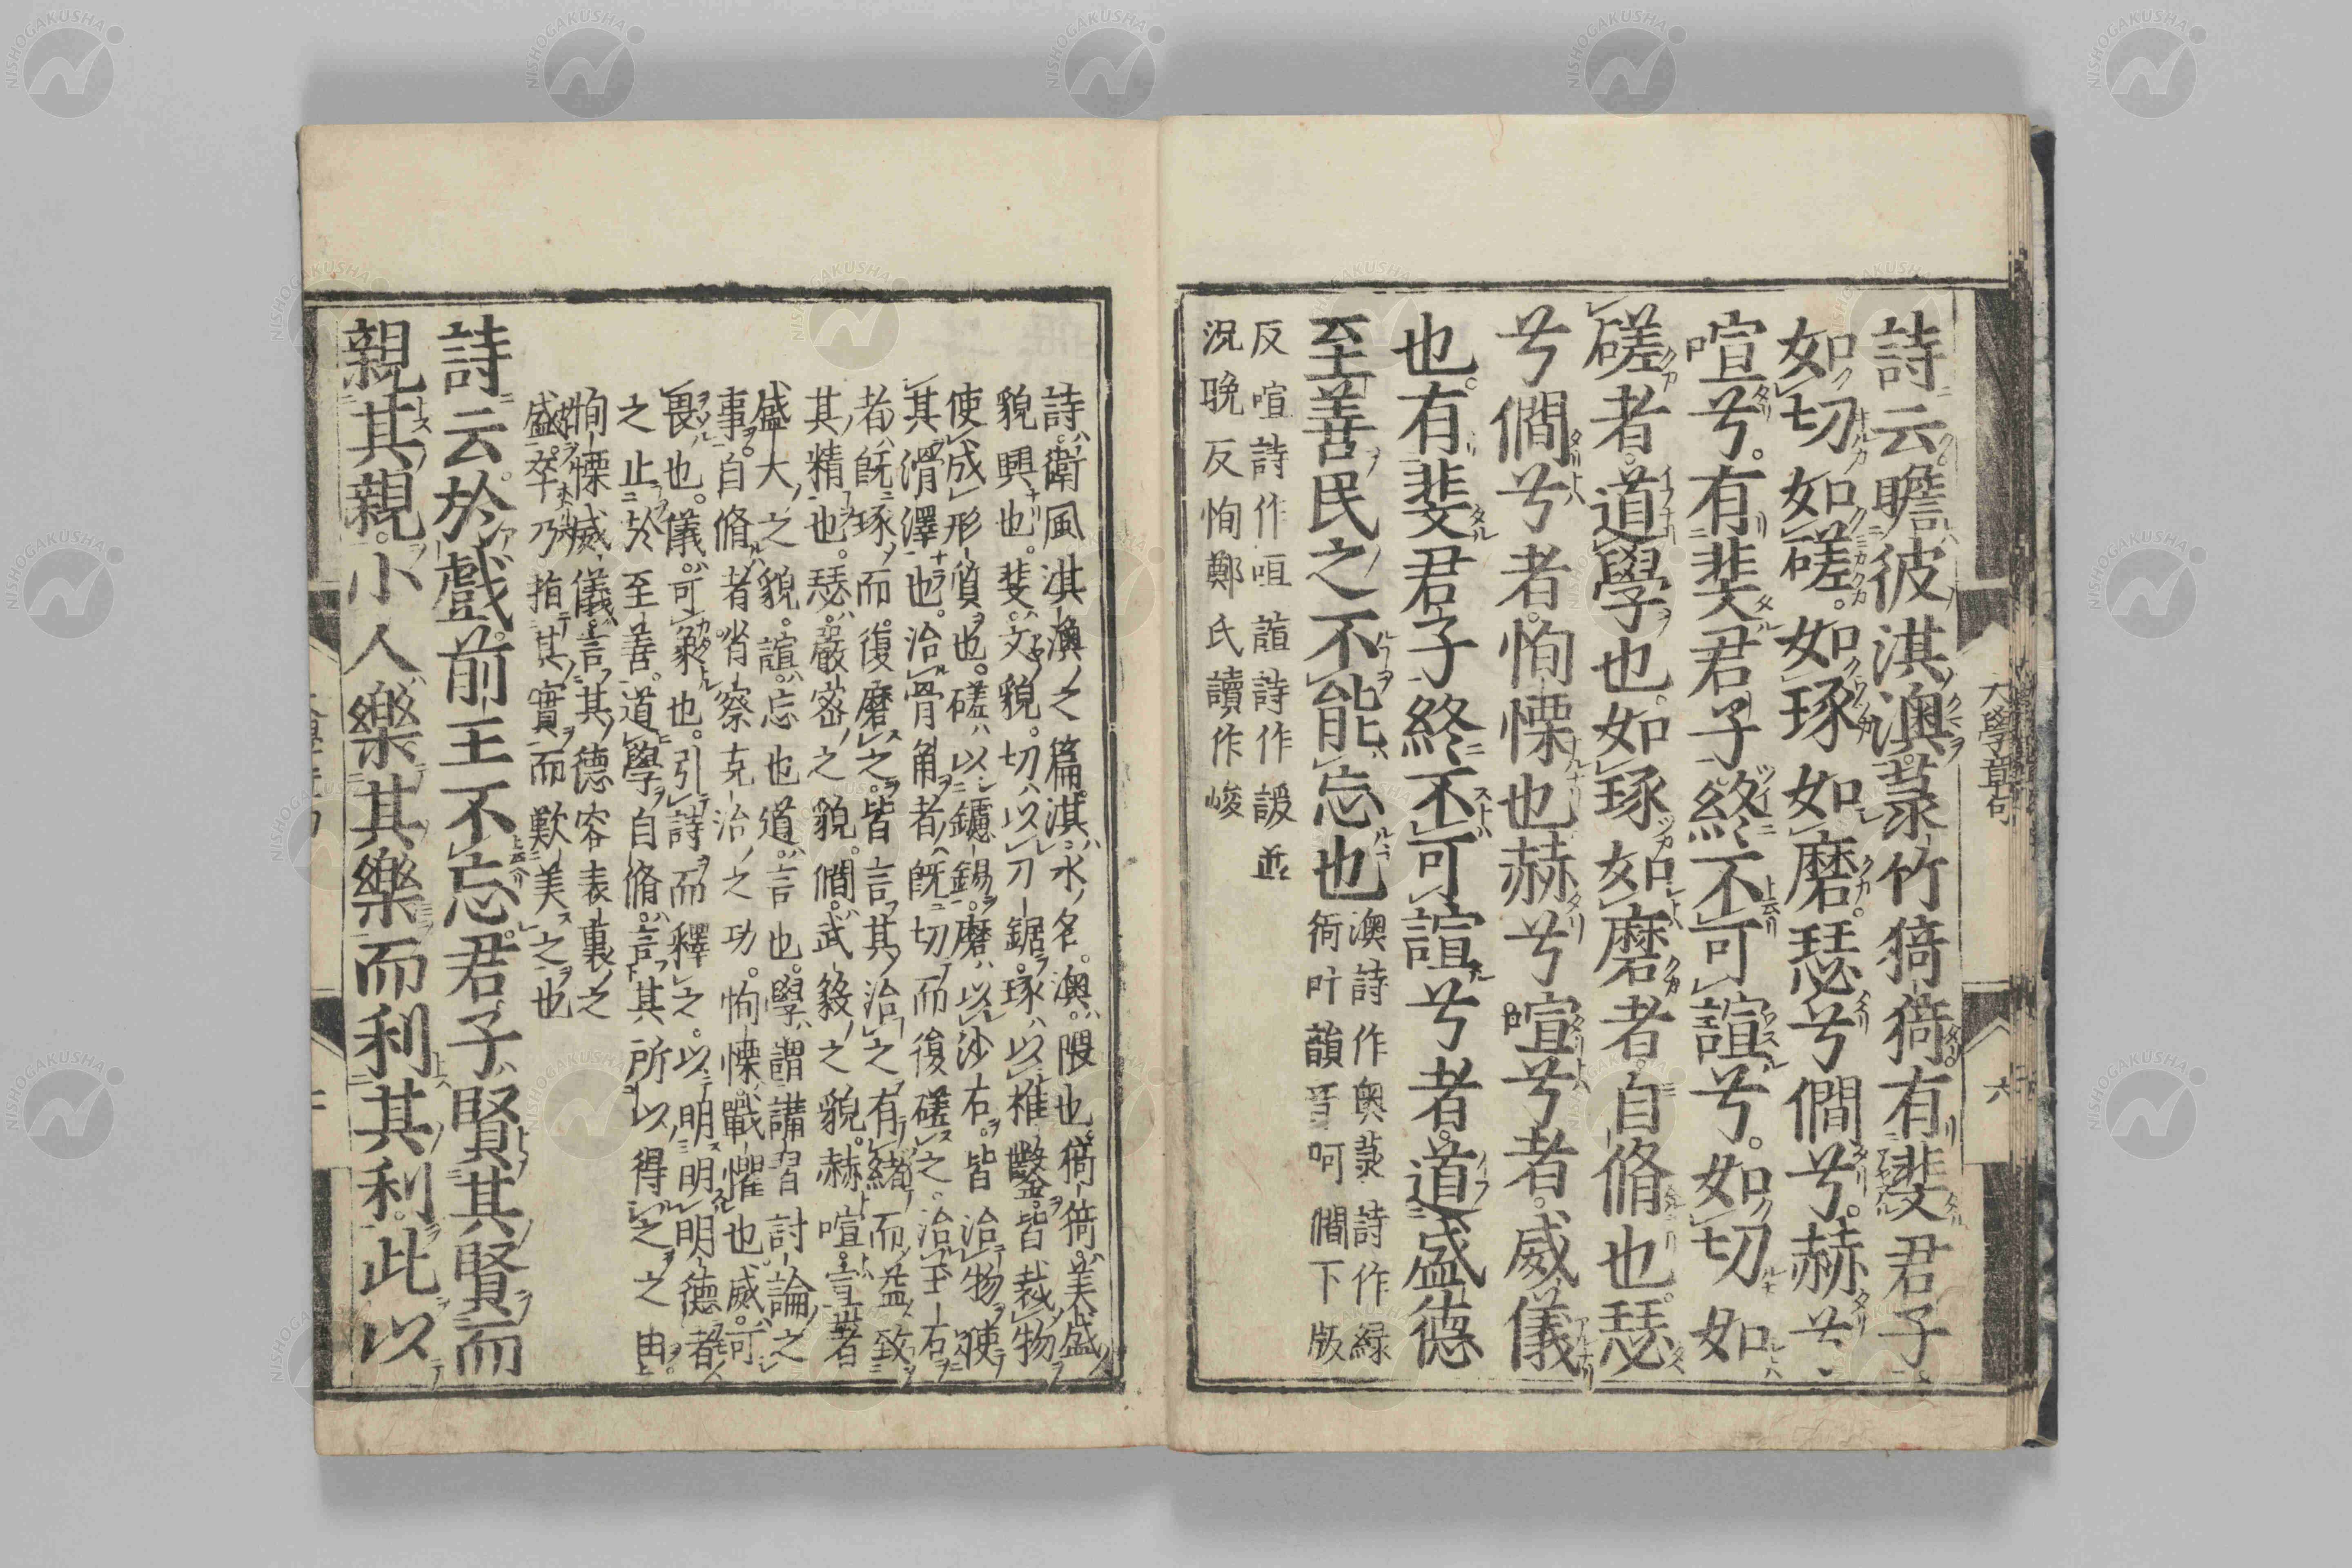 詩云瞻彼淇澳菉竹猗猗有斐君子
如切如磋如琢如磨瑟兮僩兮赫兮
喧兮有斐君子終不可諠兮如切如
磋者道學也如琢如磨者自脩也瑟
兮僩兮者恂慄也赫兮喧兮者威儀
也有斐君子終不可諠兮者道盛德
至善民之不能忘也
澳詩作奧菉詩作綠
猗叶韻音呵僩下版
反喧詩作咺諠詩作諼並
況晚反恂鄭氏讀作峻
大學章句
六
詩衛風淇澳之篇淇水名澳隈也猗猗美盛
貌興也斐文貌切以刀鋸琢以椎鑿皆裁物
使成形質也磋以鑢鍚磨以沙石皆治物使
其滑澤也治骨角者既切而復磋之治玉石
者既琢而復磨之皆言其治之有緒而益致
其精也瑟嚴密之貌僩武毅之貌赫喧宣著
盛大之貌諠忘也道言也學謂講習討論之
事自脩者省察克治之功恂慄戰懼也威可
畏也儀可象也引詩而釋之以明明明德者
之止於至善道學自脩言其所以得之之由
恂慄威儀言其德容表裏之
盛卒乃指其實而歎美之也
詩云於戲前王不忘君子賢其賢而
親其親小人樂其樂而利其利此以